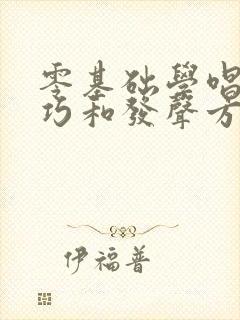 零基础學唱
巧和發聲方
伊福普